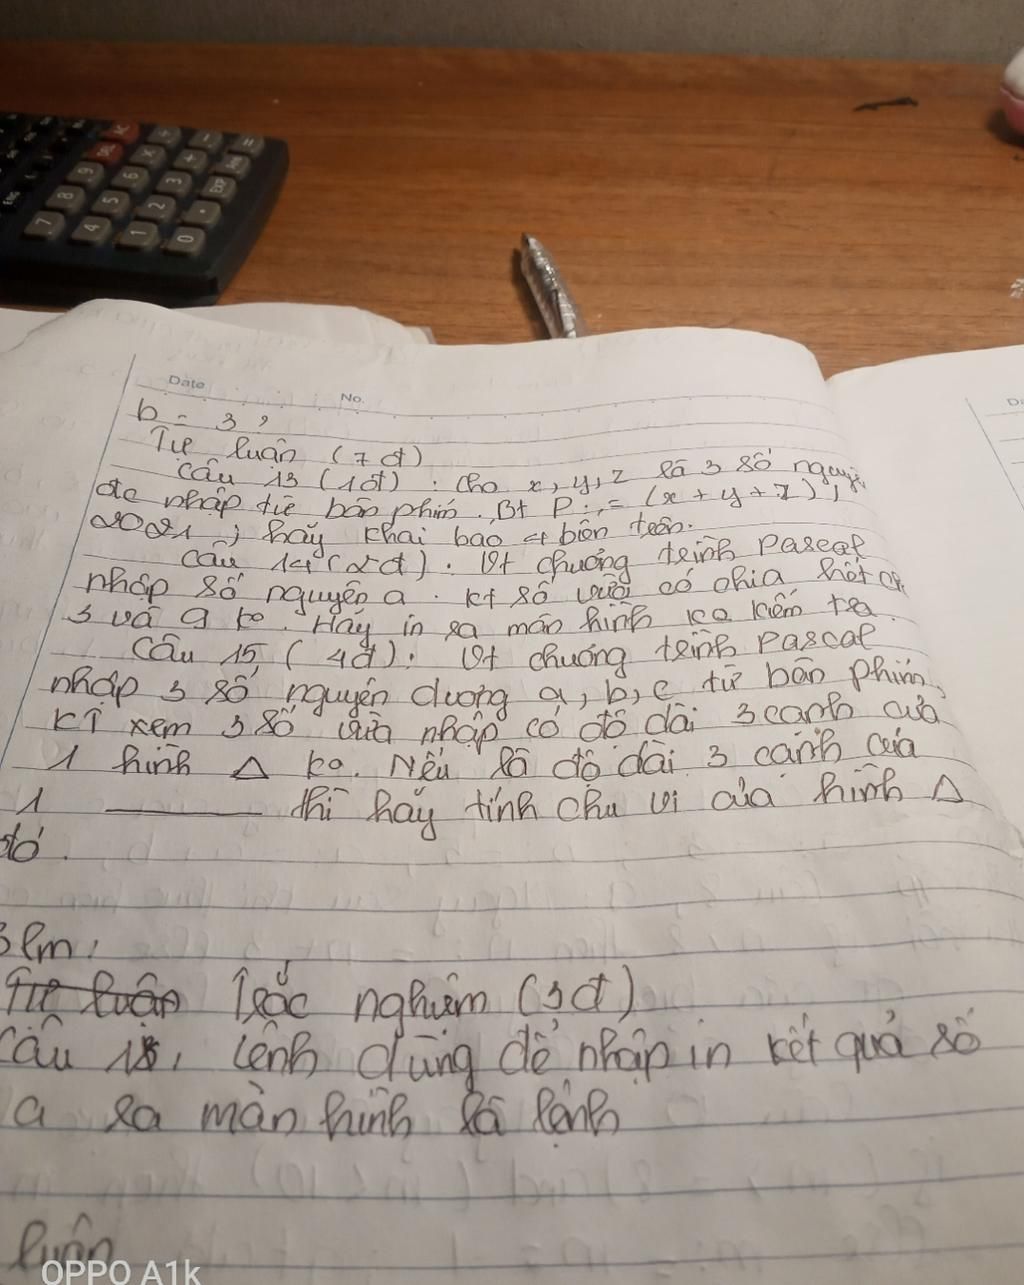 Date No.
b = 3,
Tự luận (7 đ)
Câu 13 (1đ) : Cho x, y, z là 3 số nguyên
đc nhập từ bàn phím. Bt P := (x + y + z);
2021; hãy khai báo 4 biến trên.
Câu 14 (2đ). Vt chương trình Pascal
nhập số nguyên a. kt số vừa có chia hết cả
3 và 9 ko. Hãy in ra màn hình kq kiểm tra.
Câu 15 (4đ): Vt chương trình Pascal
nhập 3 số nguyên dương a, b, c từ bàn phím,
kT xem 3 số vừa nhập có độ dài 3 cạnh của
1 hình Δ ko. Nếu là độ dài 3 cạnh của
1 ——— thì hãy tính chu vi của hình Δ
đó.
Blm:
Tự luận Trắc nghiệm (3đ)
Câu 1: Lệnh dùng để nhập in kết quả số
a ra màn hình là lệnh
luận
OPPO A1k
7 8 9 DEL AC
4 5 6 × ÷
1 2 3 + -
0 . EXP Ans =